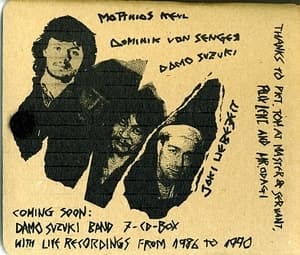 MATTHIAS KEUL
DOMINIK VON SENGER
DAMO SUZUKI
JAKI LIEBEZEIT
THANKS TO PAT, TOM AT MASTER & SERVANT,
AND
COMING SOON:
DAMO SUZUKI BAND 7-CD-BOX
WITH LIFE RECORDINGS FROM 1986 TO 1990